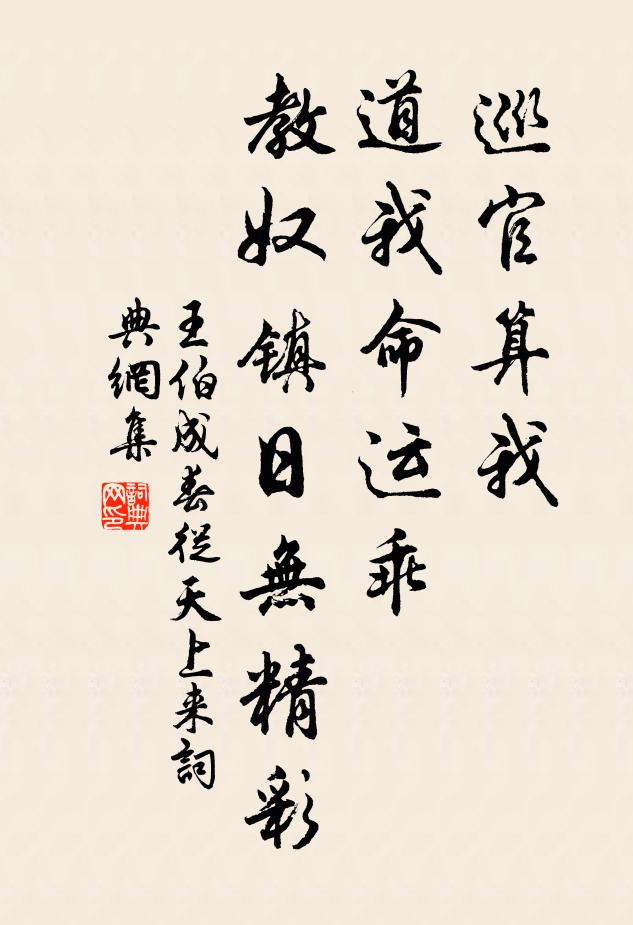 巡官算我
道我命运乖
教奴镇日無精彩
王伯成春從天上来詞
典網集
詞典网印